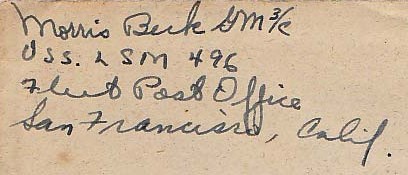 Morris Beck GM 3/c
USS. LSM 496
Fleet Post Office
San Francisco, Calif.